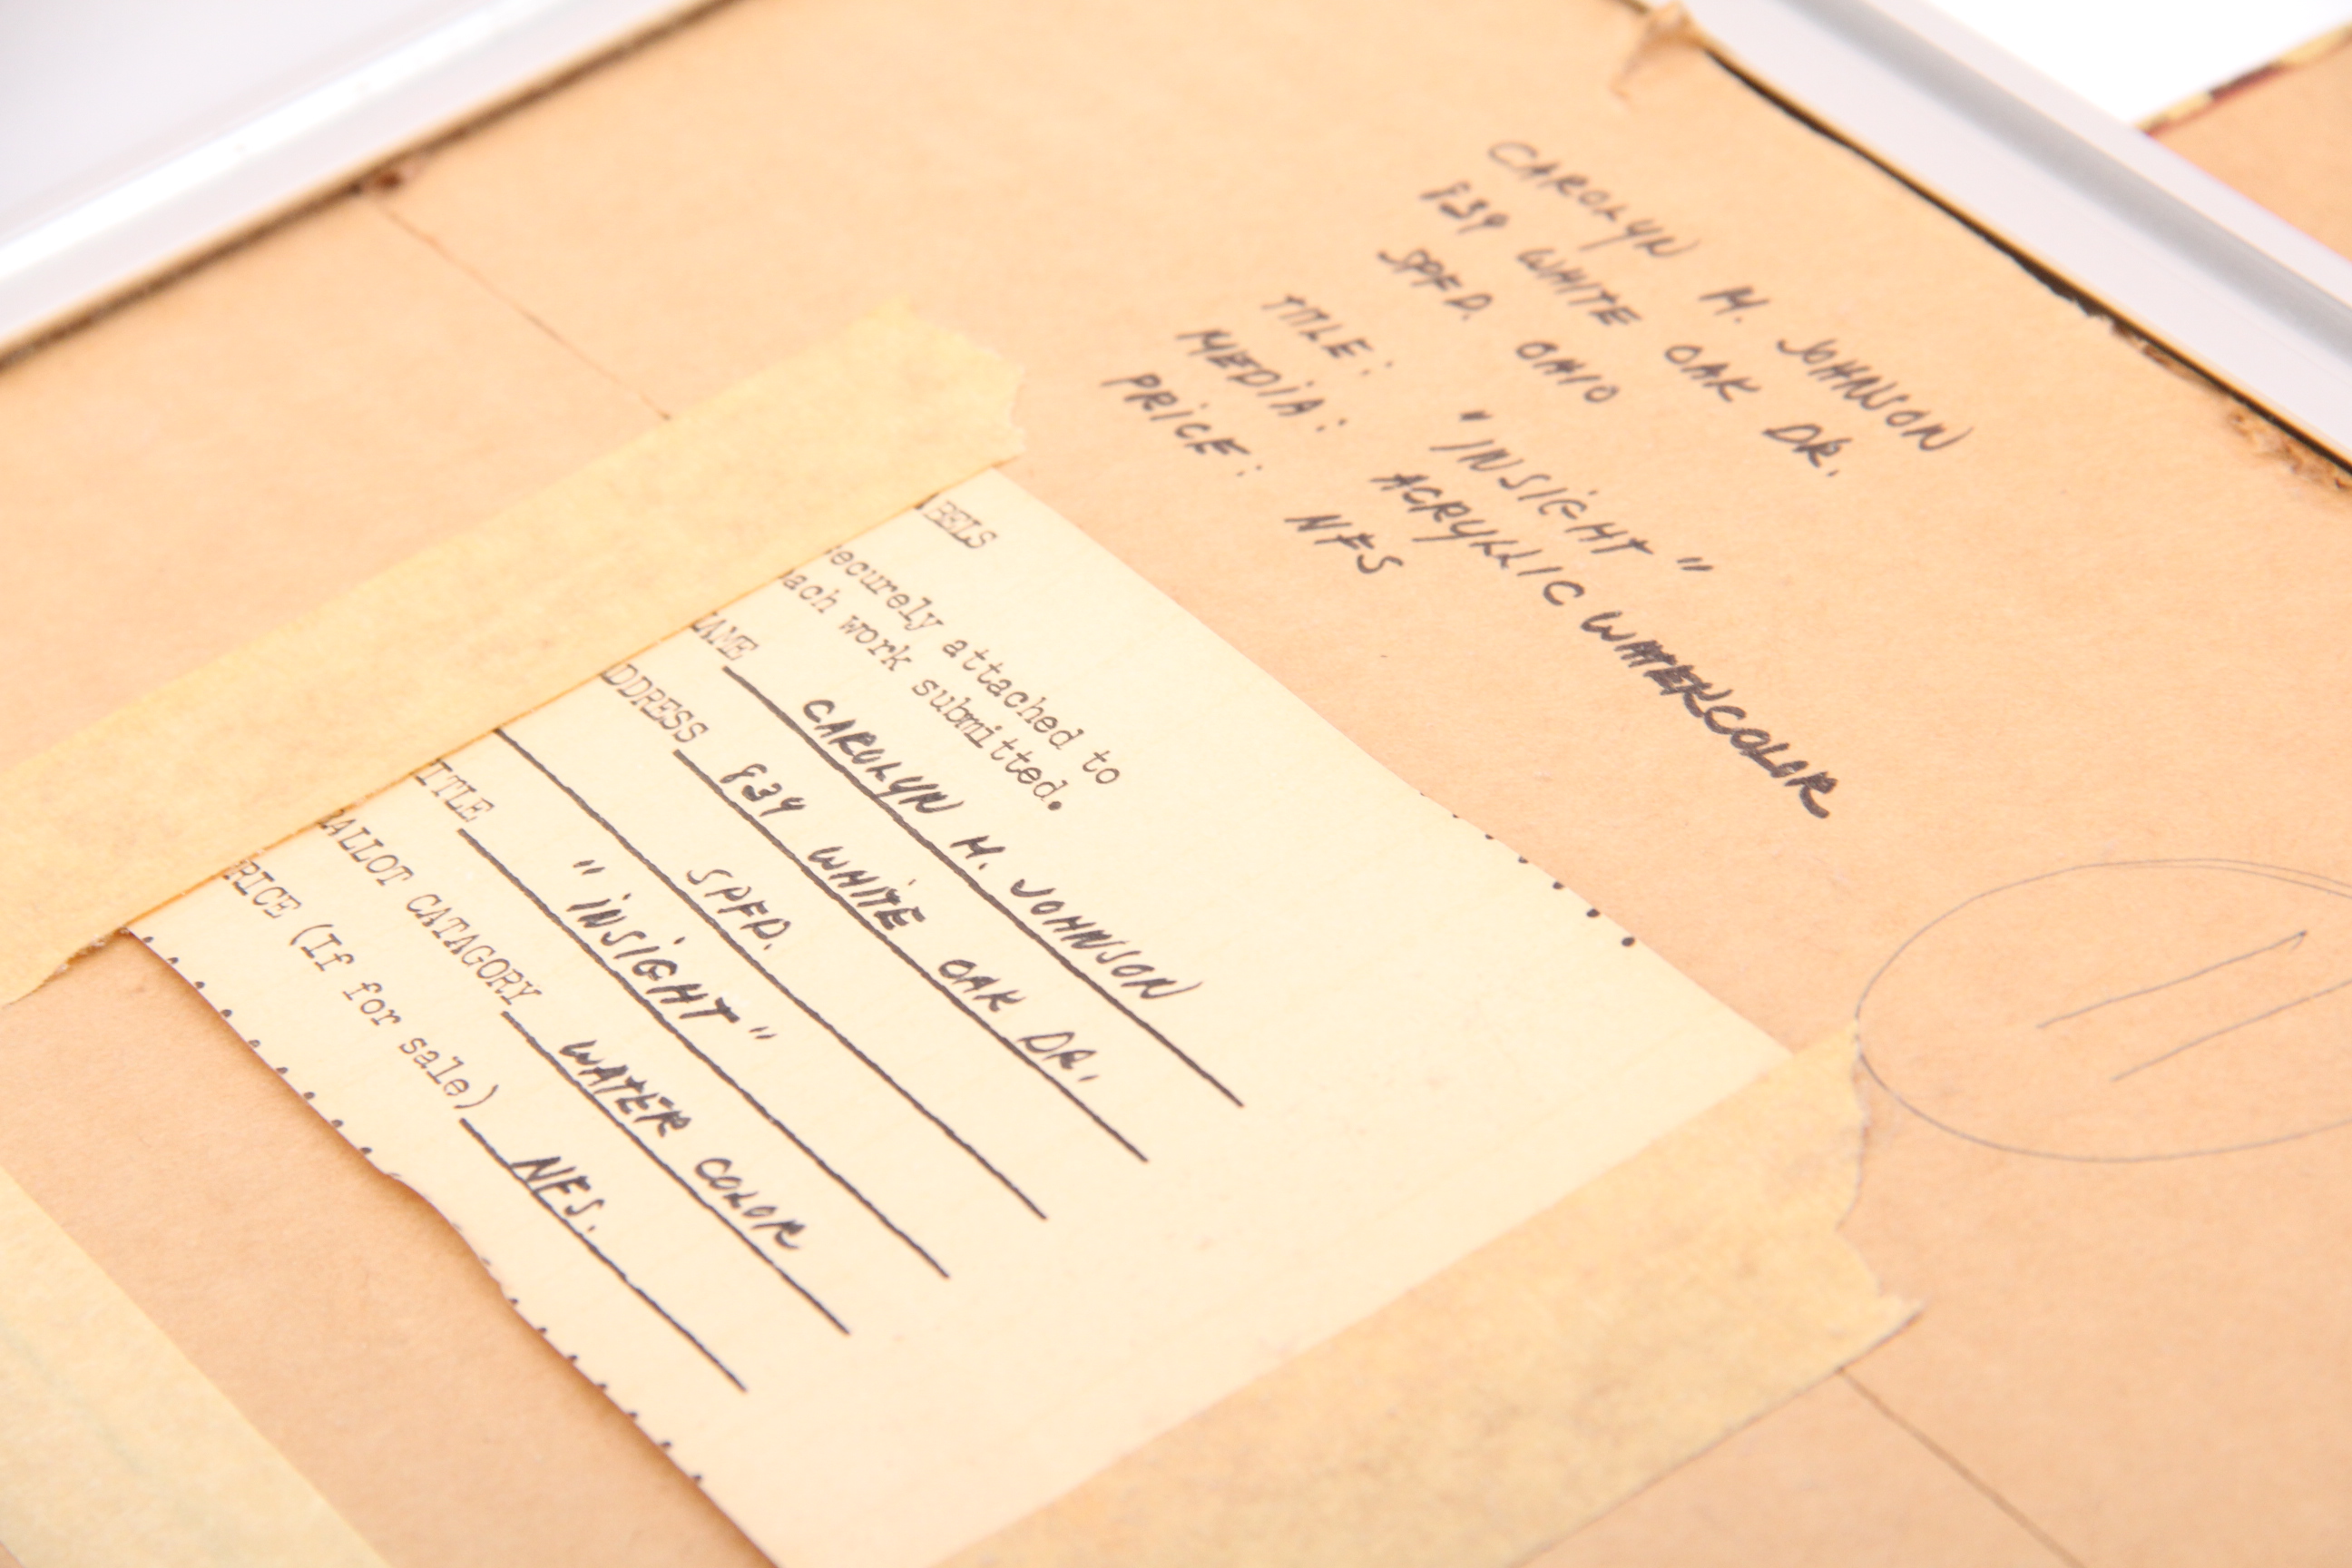 CAROLYN M. JOHNSON
839 WHITE OAK DR.
SPFD. OHIO
TITLE: "INSIGHT"
MEDIA: ACRYLIC WATERCOLOR
PRICE: NFS
BELS
securely attached to
ach work submitted.
AME CAROLYN M. JOHNSON
DDRESS 839 WHITE OAK DR.
SPFD.
ITLE "INSIGHT"
ALLOT CATAGORY WATER COLOR
RICE (If for sale) NFS.
11